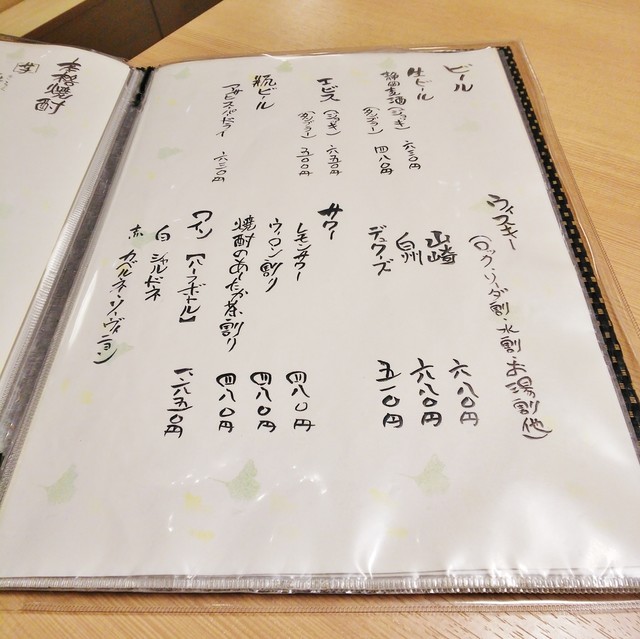 ビール
生ビール
静岡麦酒(ジョッキ) 六三〇円
(タンブラー) 四八〇円
エビス(ジョッキ) 六五〇円
(タンブラー) 五〇〇円
瓶ビール
ヱビス 六三〇円
ウィスキー
(ロック・ソーダ割・水割・お湯割他)
山崎 六八〇円
白州 六八〇円
デュワーズ 五一〇円
サワー
レモンサワー 四八〇円
ウーロン割り 四八〇円
焼酎のあしたか茶割り 四八〇円
ワイン【ハーフボトル】 一、六五〇円
白 シャルドネ
赤 カベルネ・ソーヴィニヨン
本格焼酎
芋